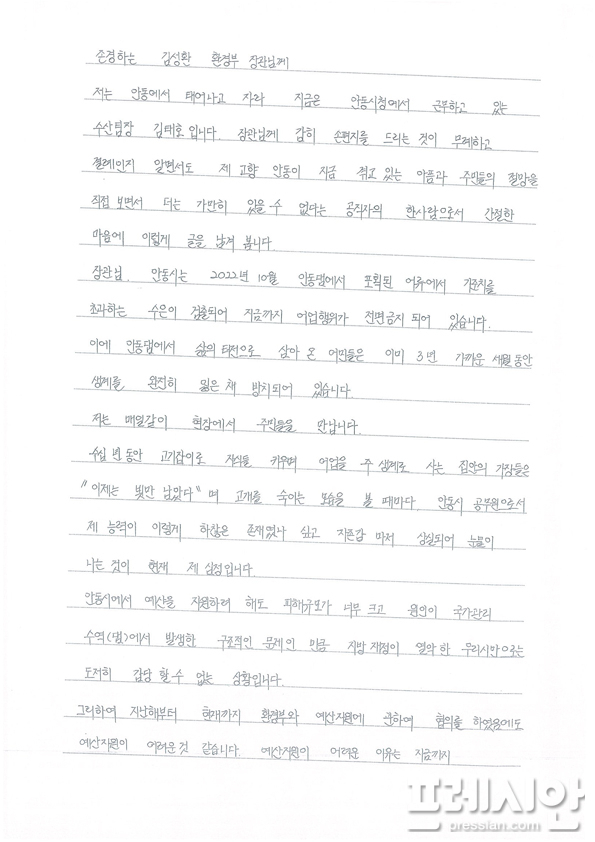 존경하는 김성환 환경부 장관님께
저는 안동에서 태어나고 자라 지금은 안동시청에서 근무하고 있는
수산팀장 김태호입니다. 장관님께 감히 손편지를 드리는 것이 무례하고
결례인지 알면서도 제 고향 안동이 지금 겪고 있는 아픔과 주민들의 절망을
직접 보면서 더는 가만히 있을 수 없다는 공직자의 한사람으로서 간절한
마음에 이렇게 글을 남겨 봅니다.
장관님. 안동시는 2022년 10월 안동댐에서 포획된 어류에서 기준치를
초과하는 수은이 검출되어 지금까지 어업행위가 전면금지 되어 있습니다.
이에 안동댐에서 삶의 터전으로 살아 온 어민들은 이미 3년 가까운 세월동안
생계를 완전히 잃은 채 방치되어 있습니다.
저는 매일같이 현장에서 주민들을 만납니다.
수십 년 동안 고기잡이로 자식들 키우며 어업을 주 생계로 사는 집안의 가장들은
"이제는 빚만 남았다"며 고개를 숙이는 모습을 볼 때마다. 안동시 공무원으로서
제 능력이 이렇게 하찮은 존재였나 싶고 자존감 마저 상실되어 눈물이
나는 것이 현재 제 심정입니다.
안동시에서 예산을 지원하려 해도 피해규모가 너무 크고 원인이 국가관리
수역(댐)에서 발생한 구조적인 문제인 만큼 지방재정이 열악한 우리시만으로는
도저히 감당 할 수 없는 상황입니다.
그리하여 지난해부터 현재까지 환경부와 예산지원에 관하여 협의를 하였음에도
예산지원이 어려운것 같습니다. 예산지원이 어려운 이유는 지금까지
프레시안
pressian.com